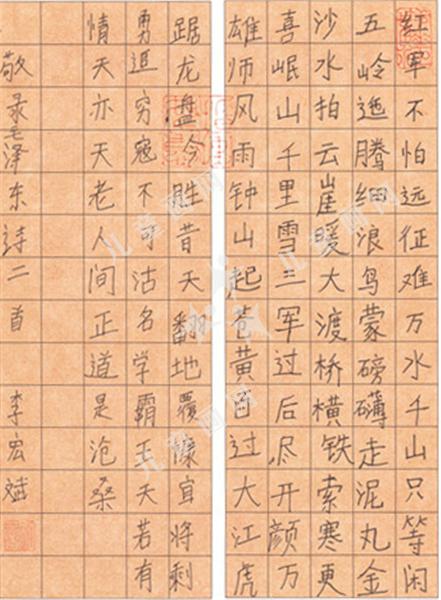 红军不怕远征难万水千山只等闲
五岭迤腾细浪鸟蒙磅礴走泥丸金
沙水拍云崖暖大渡桥横铁索寒更
喜岷山千里雪三军过后尽开颜万
雄师风雨钟山起苍黄百过大江虎
踞龙盘今胜昔天翻地覆慷宜将剩
勇追穷寇不可沽名学霸王天若有
情天亦天老人间正道是沧桑
敬录毛泽东诗二首 李宏斌
儿童画网